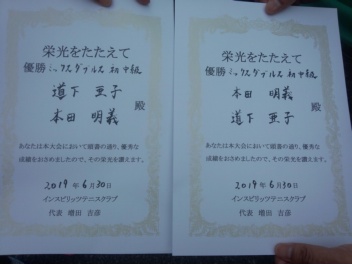 栄光をたたえて
優勝 ミックスダブルス 初中級
道下 亜子
本田 明義
殿
あなたは本大会において頭書の通り、優秀な
成績をおさめましたので、その栄光を讃えます。
2019 年 6 月 30 日
インスピリッツテニスクラブ
代表 増田 吉彦
栄光をたたえて
優勝 ミックスダブルス 初中級
本田 明義
道下 亜子
殿
あなたは本大会において頭書の通り、優秀な
成績をおさめましたので、その栄光を讃えます。
2019 年 6 月 30 日
インスピリッツテニスクラブ
代表 増田 吉彦